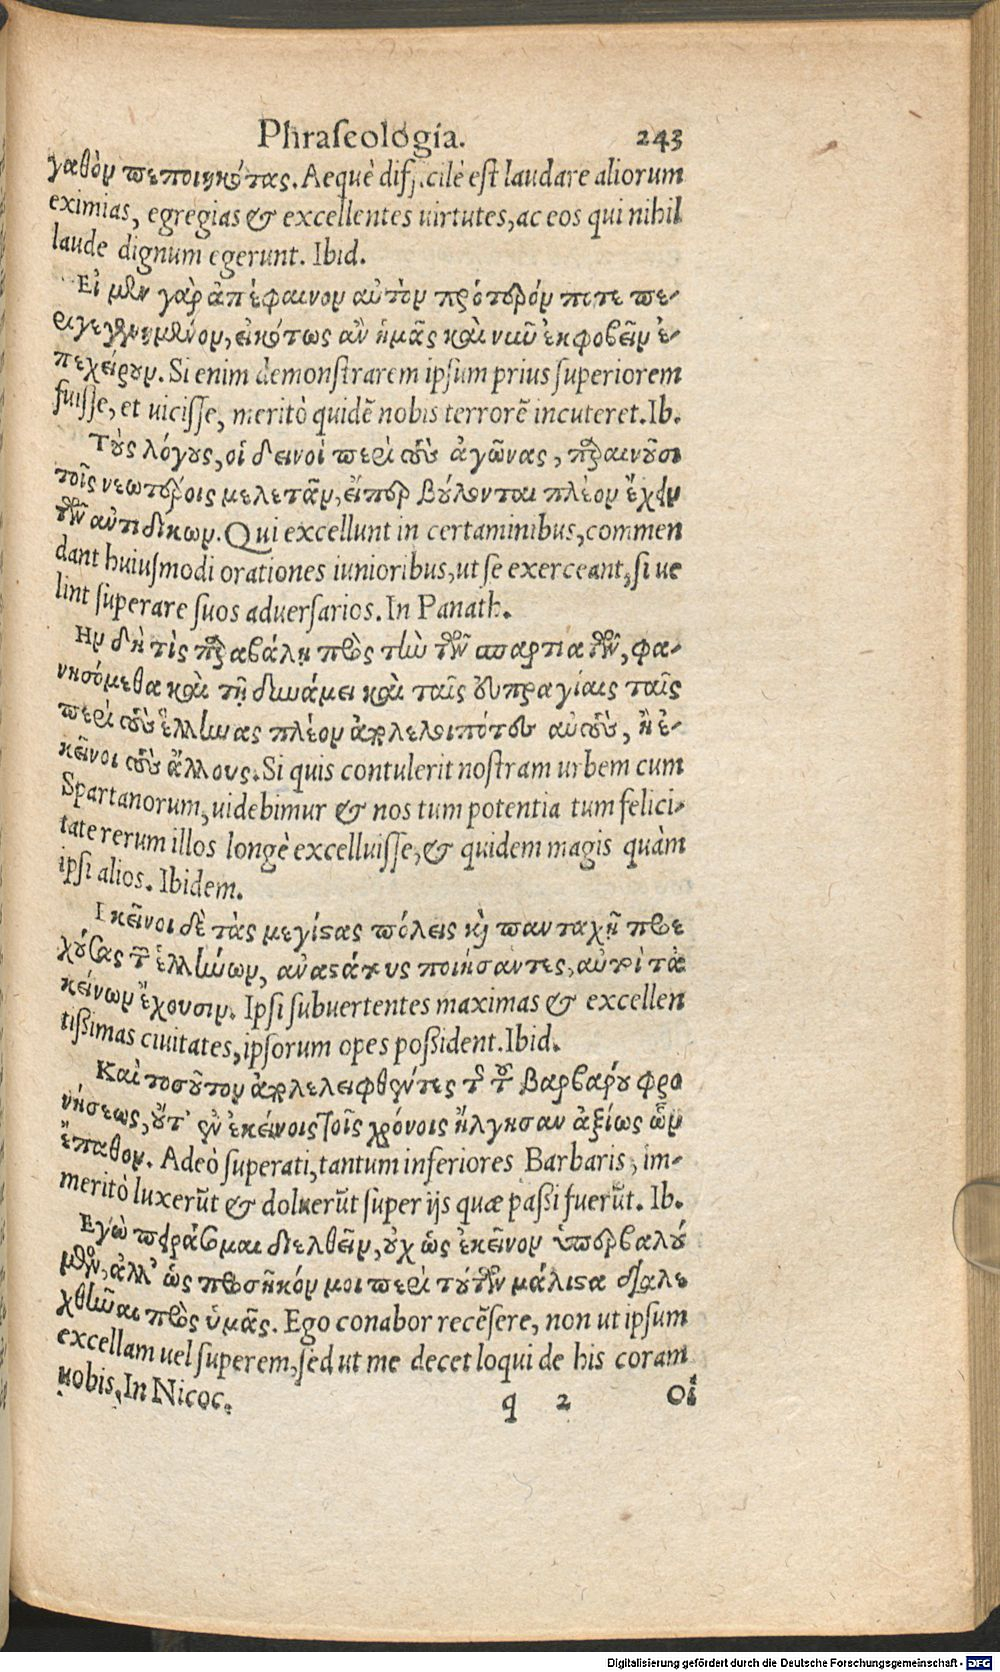 Phraseologia. 243
γαθὸν πεποιηκότας. Aequè difficile est laudare aliorum
eximias, egregias & excellentes uirtutes, ac eos qui nihil
laude dignum egerunt. Ibid.
Εἰ μὲν γὰρ ἀπέφαινον αὐτὸν πρότερόν ποτε πε-
ριγεγενημένον, εἰκότως ἂν ἡμᾶς καὶ νῦν ἐκφοβεῖν ἐ-
πεχείρουν. Si enim demonstrarem ipsum prius superiorem
fuisse, et uicisse, meritò quidē nobis terrorē incuteret. Ib.
Τοὺς λόγους, οἱ δεινοὶ περὶ τοὺς ἀγῶνας, παραινοῦσι
τοῖς νεωτέροις μελετᾶν, εἴπερ βούλονται πλέον ἔχειν
τῶν ἀντιδίκων. Qui excellunt in certaminibus, commen
dant huiusmodi orationes iunioribus, ut se exerceant, si ue
lint superare suos aduersarios. In Panath.
Ην δή τις παραβάλῃ πρὸς τὴν τῶν σπαρτιατῶν, φα-
νησόμεθα καὶ τῇ δυνάμει καὶ ταῖς εὐπραγίαις ταῖς
περὶ τοὺς ἕλληνας πλέον διαλελοιπότες αὐτοὺς, ἢ ἐ-
κεῖνοι τοὺς ἄλλους. Si quis contulerit nostram urbem cum
Spartanorum, uidebimur & nos tum potentia tum felici-
tate rerum illos longè excelluisse, & quidem magis quàm
ipsi alios. Ibidem.
Ικεῖνοι δὲ τὰς μεγίστας πόλεις καὶ πανταχῆ προε
χούσας τῶν ἑλλήνων, ἀναστάτους ποιήσαντες, αὐτοὶ τὰ
κείνων ἔχουσιν. Ipsi subuertentes maximas & excellen
tissimas ciuitates, ipsorum opes possident. Ibid.
Καὶ τοσοῦτον διαλελειφθέντες τῆς τοῦ βαρβάρου φρο
νήσεως, οὔτ' ἐν ἐκείνοις τοῖς χρόνοις ἤλγησαν ἀξίως ὧν
ἔπαθον. Adeò superati, tantum inferiores Barbaris, im-
meritò luxerūt & doluerūt super ijs quæ passi fuerūt. Ib.
Εγὼ πειράσομαι διελθεῖν, οὐχ ὡς ἐκεῖνον ὑπερβαλού
μενος, ἀλλ' ὡς προσῆκόν μοι περὶ τούτων μάλιστα διαλε
χθῆναι πρὸς ὑμᾶς. Ego conabor recēsere, non ut ipsum
excellam uel superem, sed ut me decet loqui de his coram
uobis, In Nicoc.
q 2 Οἱ
Digitalisierung gefördert durch die Deutsche Forschungsgemeinschaft - DFG